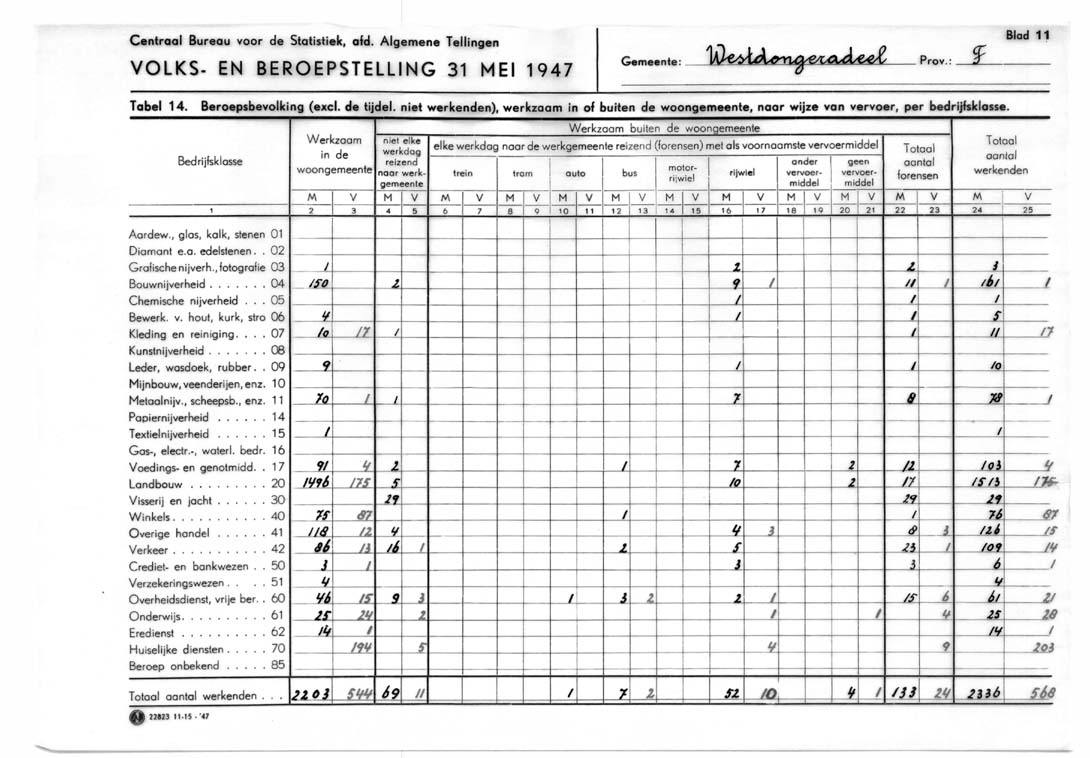 Centraal Bureau voor de Statistiek, afd. Algemene Tellingen
VOLKS- EN BEROEPSTELLING 31 MEI 1947
Gemeente: Westdongeradeel Prov.: F
Blad 11
Tabel 14. Beroepsbevolking (excl. de tijdel. niet werkenden), werkzaam in of buiten de woongemeente, naar wijze van vervoer, per bedrijfsklasse.
Bedrijfsklasse
Werkzaam in de woongemeente
Werkzaam buiten de woongemeente
niet elke werkdag reizend naar werkgemeente
elke werkdag naar de werkgemeente reizend (forensen) met als voornaamste vervoermiddel
trein tram auto bus motor-rijwiel rijwiel ander vervoer-middel geen vervoer-middel
Totaal aantal forensen
Totaal aantal werkenden
M V M V M V M V M V M V M V M V M V M V M V M V
1 2 3 4 5 6 7 8 9 10 11 12 13 14 15 16 17 18 19 20 21 22 23 24 25
Aardew., glas, kalk, stenen 01
Diamant e.a. edelstenen . . 02
Grafische nijverh., fotografie 03 1 2 2 3
Bouwnijverheid . . . . . . . 04 150 2 9 1 11 1 161 1
Chemische nijverheid . . . 05 1 1 1
Bewerk. v. hout, kurk, stro 06 4 1 1 5
Kleding en reiniging. . . . 07 10 17 1 1 11 17
Kunstnijverheid . . . . . . . 08
Leder, wasdoek, rubber. . 09 9 1 1 10
Mijnbouw, veenderijen, enz. 10
Metaalnijv., scheepsb., enz. 11 70 1 1 7 8 78 1
Papiernijverheid . . . . . . 14
Textielnijverheid . . . . . . 15 1 1
Gas-, electr.-, waterl. bedr. 16
Voedings- en genotmidd. . 17 91 4 2 1 7 2 12 103 4
Landbouw . . . . . . . . . 20 1496 175 5 10 2 17 1513 175
Visserij en jacht . . . . . . 30 29 29 29
Winkels. . . . . . . . . . . 40 75 87 1 1 76 87
Overige handel . . . . . . . 41 118 12 4 4 3 8 3 126 15
Verkeer . . . . . . . . . . . 42 86 13 16 1 2 5 23 1 109 14
Crediet- en bankwezen . . 50 3 1 3 3 6 1
Verzekeringswezen . . . . 51 4 4
Overheidsdienst, vrije ber. . 60 46 15 9 3 1 3 2 2 1 15 6 61 21
Onderwijs. . . . . . . . . . 61 25 24 2 1 1 4 25 28
Eredienst . . . . . . . . . . 62 14 1 14 1
Huiselijke diensten . . . . . 70 194 5 4 9 203
Beroep onbekend . . . . . 85
Totaal aantal werkenden . . . 2203 544 69 11 1 7 2 52 10 4 1 133 24 2336 568
22823 11-15 - '47